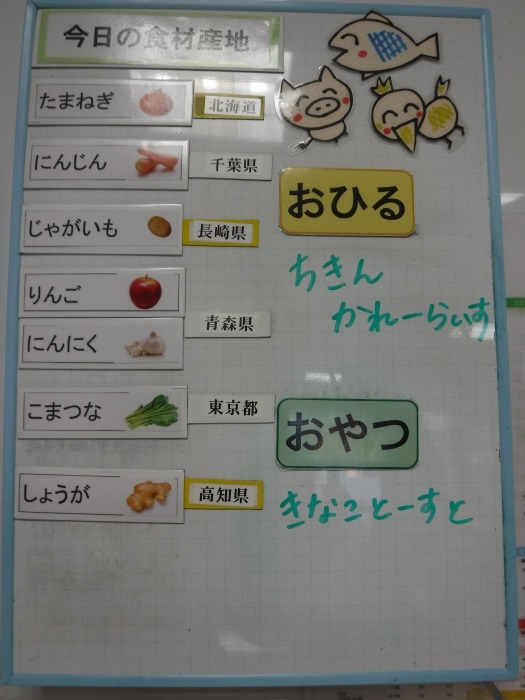 今日の食材産地
たまねぎ 北海道
にんじん 千葉県
じゃがいも 長崎県
りんご
にんにく 青森県
こまつな 東京都
しょうが 高知県
おひる
ちきん
かれーらいす
おやつ
きなことーすと